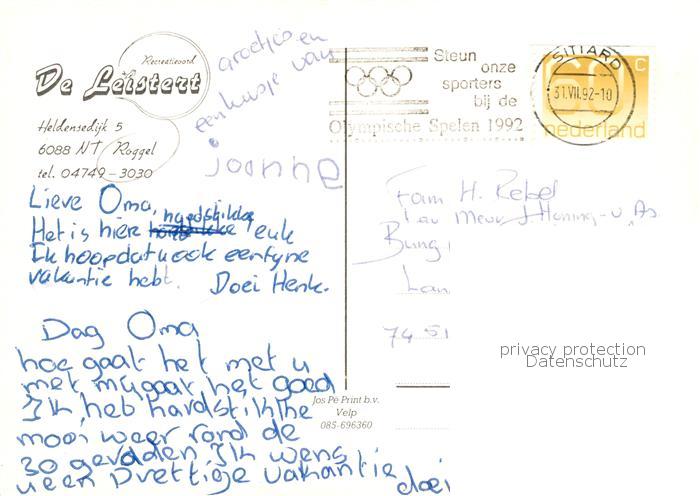 Recreatieoord
De Leistert
Heldensedijk 5
6088 NT Roggel
tel. 04749-3030
groetjes en
een kusje van
joanne
Lieve Oma,
Het is hier hardstikke leuk
Ik hoop dat u ook een fyne
vakantie hebt. Doei Henk.
Dag Oma
hoe gaat het met u
met mij gaat het goed
Ik heb hardstikke
mooi weer rond de
30 graden Ik wens
u een prettige vakantie doei
Steun
onze
sporters
bij de
Olympische Spelen 1992
SITTARD
31.VII.92-10
60 c
nederland
Fam H. Rebel
Bung
Lan
7451
privacy protection
Datenschutz
Jos Pé Print b.v.
Velp
085-696360